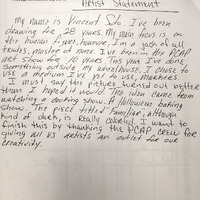 Artist Statement
My name is Vincent Soto. I've been
drawing for 28 years. My main focus is on
the human figure, however, I'm a jack of all
trades, master of none. I've been in the PCAP
art show for 10 years. This year I've done
something outside my wheelhouse. I chose to
use a medium I've yet to use, markers.
I must say this picture turned out better
than I hoped it would. This idea came from
watching a baking show. A Halloween baking
show. The piece titled "Familiar", although
kind of dark, is really colorful. I want to
finish this by thanking the PCAP crew for
giving all us artists an outlet for our
creativity.